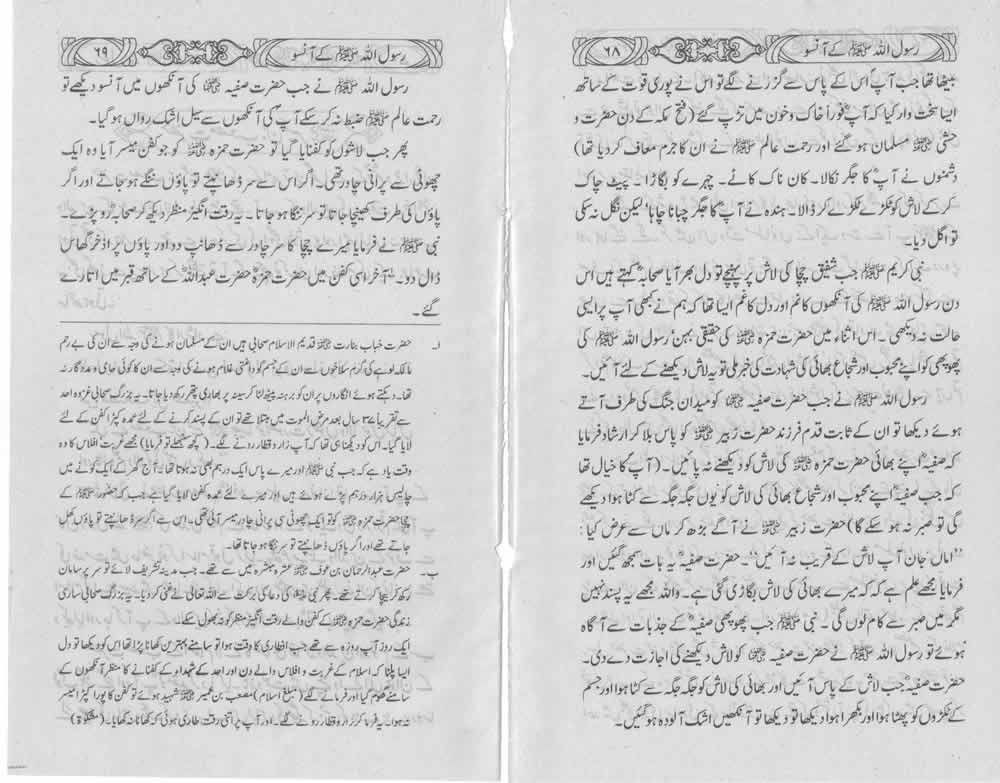 رسول اللہ ﷺ کے آنسو
۶۸
بیٹھا تھا جب آپؓ اس کے پاس سے گزرنے لگے تو اس نے پوری قوت کے ساتھ
ایسا سخت وار کیا کہ آپؓ فوراً خاک و خون میں تڑپ گئے (فتح مکہ کے دن حضرت و
حشی ؓ مسلمان ہو گئے اور رحمت عالم ﷺ نے ان کا جرم معاف کر دیا تھا)
دشمنوں نے آپؓ کا جگر نکالا۔ کان ناک کانے۔ چہرے کو بگاڑا۔ پیٹ چاک
کر کے لاش کو ٹکڑے ٹکڑے کر ڈالا۔ ہندہ نے آپؓ کا جگر چبانا چاہا' لیکن نگل نہ سکی
تو اگل دیا۔
نبی کریم ﷺ جب شفیق چچا کی لاش پر پہنچے تو دل بھر آیا صحابہؓ کہتے ہیں اس
دن رسول اللہ ﷺ کی آنکھوں کا غم اور دل کا غم ایسا تھا کہ ہم نے کبھی آپ پر ایسی
حالت نہ دیکھی۔ اس اثناء میں حضرت حمزہ ؓ کی حقیقی بہن' رسول اللہ ﷺ کی
پھوپھی کو اپنے محبوب اور شجاع بھائی کی شہادت کی خبر ملی تو یہ لاش دیکھنے کے لئے آئیں۔
رسول اللہ ﷺ نے جب حضرت صفیہ ؓ کو میدان جنگ کی طرف آتے
ہوئے دیکھا تو ان کے ثابت قدم فرزند حضرت زبیر ؓ کو پاس بلا کر ارشاد فرمایا
کہ صفیہؓ اپنے بھائی حضرت حمزہ ؓ کی لاش کو دیکھنے نہ پائیں۔ (آپؐ کا خیال تھا
کہ جب صفیہؓ اپنے محبوب اور شجاع بھائی کی لاش کو یوں جگہ جگہ سے کٹا ہوا دیکھے
گی تو صبر نہ ہو سکے گا) حضرت زبیر ؓ نے آگے بڑھ کر ماں سے عرض کیا:
"اماں جان آپ لاش کے قریب نہ آئیں"۔ حضرت صفیہؓ یہ بات سمجھ گئیں اور
فرمایا مجھے علم ہے کہ کہ میرے بھائی کی لاش بگاڑی گئی ہے۔ واللہ مجھے یہ پسند نہیں
مگر میں صبر سے کام لوں گی۔ نبی ﷺ جب پھوپھی صفیہؓ کے جذبات سے آگاہ
ہوئے تو رسول اللہ ﷺ نے حضرت صفیہ ؓ کو لاش دیکھنے کی اجازت دے دی۔
حضرت صفیہؓ جب لاش کے پاس آئیں اور بھائی کی لاش کو جگہ جگہ سے کٹا ہوا اور جسم
کے ٹکڑوں کو پھٹا ہوا اور بکھرا ہوا دیکھا تو دیکھا تو آنکھیں اشک آلودہ ہو گئیں۔
رسول اللہ ﷺ کے آنسو
۶۹
رسول اللہ ﷺ نے جب حضرت صفیہ ؓ کی آنکھوں میں آنسو دیکھے تو
رحمت عالم ﷺ ضبط نہ کر سکے آپؐ کی آنکھوں سے سیل اشک رواں ہو گیا۔
پھر جب لاشوں کو کفنایا گیا تو حضرت حمزہ ؓ کو جو کفن میسر آیا وہ ایک
چھوٹی سے پرانی چادر تھی۔ اگر اس سے سر ڈھانپتے تو پاؤں ننگے ہو جاتے اور اگر
پاؤں کی طرف کھینچا جاتا تو سر ننگا ہو جاتا۔ یہ رقت انگیز منظر دیکھ کر صحابہؓ رو پڑے۔
نبی ﷺ نے فرمایا میرے چچا کا سر چادر سے ڈھانپ دو اور پاؤں پر اذخر گھاس
ڈال دو۔ آخر اسی کفن میں حضرت حمزہؓ حضرت عبداللہؓ کے ساتھ قبر میں اتارے
گئے۔
ا۔ حضرت خباب بن ارت ؓ قدیم الاسلام صحابی ہیں ان کے مسلمان ہونے کی وجہ سے ان کی بے رحم
مالکہ لوہے کی گرم سلاخوں سے ان کے جسم کو داغتی غلام ہونے کی وجہ سے ان کا کوئی حامی و مددگار نہ
تھا۔ دہکتے ہوئے انگاروں پر ان کو برہنہ پیٹھ لٹا کر سینہ پر بھاری پتھر رکھ دیا جاتا۔ یہ بزرگ صحابی غزوہ احد
سے تقریباً ۳۷ سال بعد مرض الموت میں مبتلا تھے تو ان کے پسند کرنے کے لئے عمدہ کپڑا کفن کے لئے
لایا گیا۔ اس کو دیکھنا ہی تھا کہ آپ زار و قطار رونے لگے۔ (کچھ سنبھلے تو فرمایا) مجھے غربت افلاس کا وہ
وقت یاد ہے کہ جب نبی ﷺ اور میرے پاس ایک درہم بھی نہ ہوتا تھا۔ آج گھر کے ایک کونے میں
چالیس ہزار درہم پڑے ہوئے ہیں اور میرے لئے عمدہ کفن لایا گیا ہے جب کہ حضور ﷺ کے
چچا حضرت حمزہ ؓ کو تو ایک چھوٹی سی پرانی چادر میسر آئی تھی۔ اس سے اگر سر ڈھانپتے تو پاؤں کھل
جاتے تھے اور اگر پاؤں ڈھانپتے تو سر ننگا ہو جاتا تھا۔
ب۔ حضرت عبدالرحمان بن عوف ؓ عشرہ مبشرہ میں سے تھے۔ جب مدینہ تشریف لائے تو سر پر سامان
رکھ کر بیچا کرتے تھے۔ پھر نبی ﷺ کی دعا کی برکت سے اللہ تعالی نے غنی کر دیا۔ یہ بزرگ صحابی ساری
زندگی حضرت حمزہ ؓ کے کفن والے رقت انگیز منظر کو نہ بھول سکے۔
ایک روز آپ روزہ سے تھے جب افطاری کا وقت ہوا تو سامنے بہترین کھانا پڑا تھا اس کو دیکھا تو دل
ایسا پلٹا کہ اسلام کے غربت و افلاس والے دن اور احد کے شہداء کے کفنانے کا منظر آنکھوں کے
سامنے گھوم گیا اور فرمانے لگے (مبلغ اسلام) مصعب بن عمیر ؓ شہید ہوئے تو کفن کا پورا کپڑا میسر
نہ ہوا۔ یہ فرما کر زار و قطار رونے لگے۔ اور آپ پر اتنی رقت طاری ہوئی کہ کھانا نہ کھایا۔ (مشکوٰۃ)